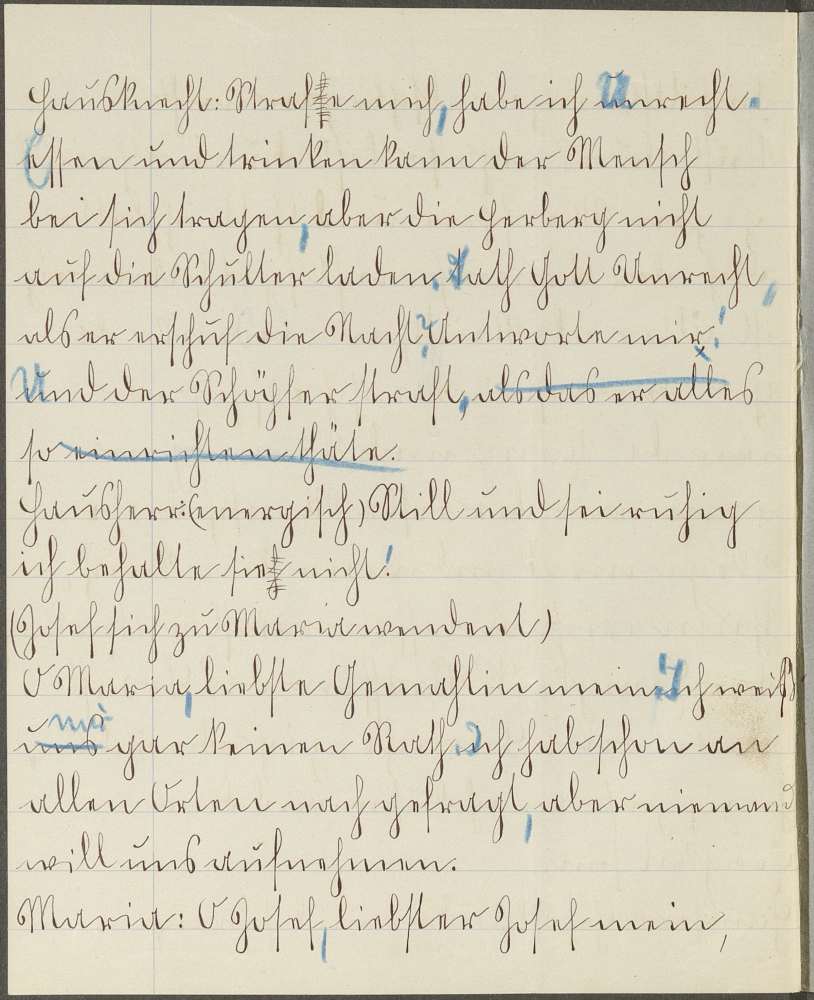 Hausknecht: Strafe mich, habe ich Unrecht.
Essen und trinken kann der Mensch
bei sich tragen, aber die Herberg nicht
auf die Schulter laden. Tath Gott Unrecht,
als er erschuf die Nacht? Antworte mir!
Und der Schöpfer straft, als das er alles
so einrichten thäte.
Hausherr: (energisch) Still und sei ruhig
ich behalte sie nicht!
(Josef sich zu Maria wendent)
O Maria, liebste Gemahlin mein. Ich weiß
mir
uns gar keinen Rath. Ich hab schon an
allen Orten nach gefragt, aber niemand
will uns aufnehmen.
Maria: O Josef, liebster Josef mein,